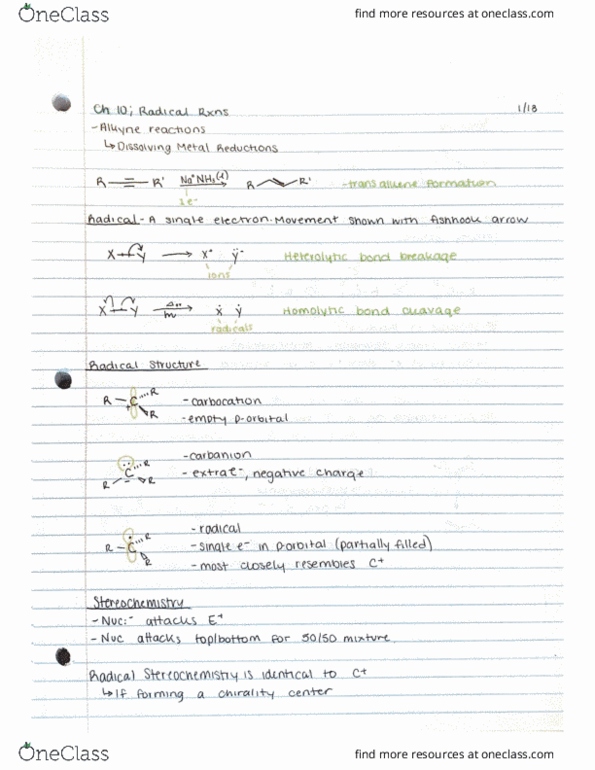 OneClass
find more resources at oneclass.com
Ch 10; Radical Rxns
1/18
-Alkyne reactions
↳Dissolving Metal Reductions
R R' Na° NH₃(l) R R' -trans alkene formation
1e⁻
Radical- A single electron. Movement shown with fishhook arrow
X-Y → X⁺ Ÿ⁻ Heterolytic bond breakage
ions
X-Y → Ẋ Ẏ Homolytic bond cleavage
radicals
Radical Structure
R-C R R
-carbocation
-empty p-orbital
-carbanion
C R R R
-extra e⁻, negative charge
-radical
R-C R R
-single e⁻ in p-orbital (partially filled)
-most closely resembles C⁺
Stereochemistry
-Nuc:⁻ attacks E⁺
-Nuc attacks top/bottom for 50/50 mixture
Radical Stereochemistry is identical to C⁺
↳If forming a chirality center
OneClass
find more resources at oneclass.com